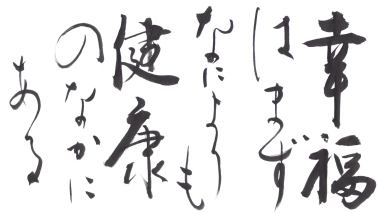 幸福
はまず
なによりも
健康
のなかに
ある